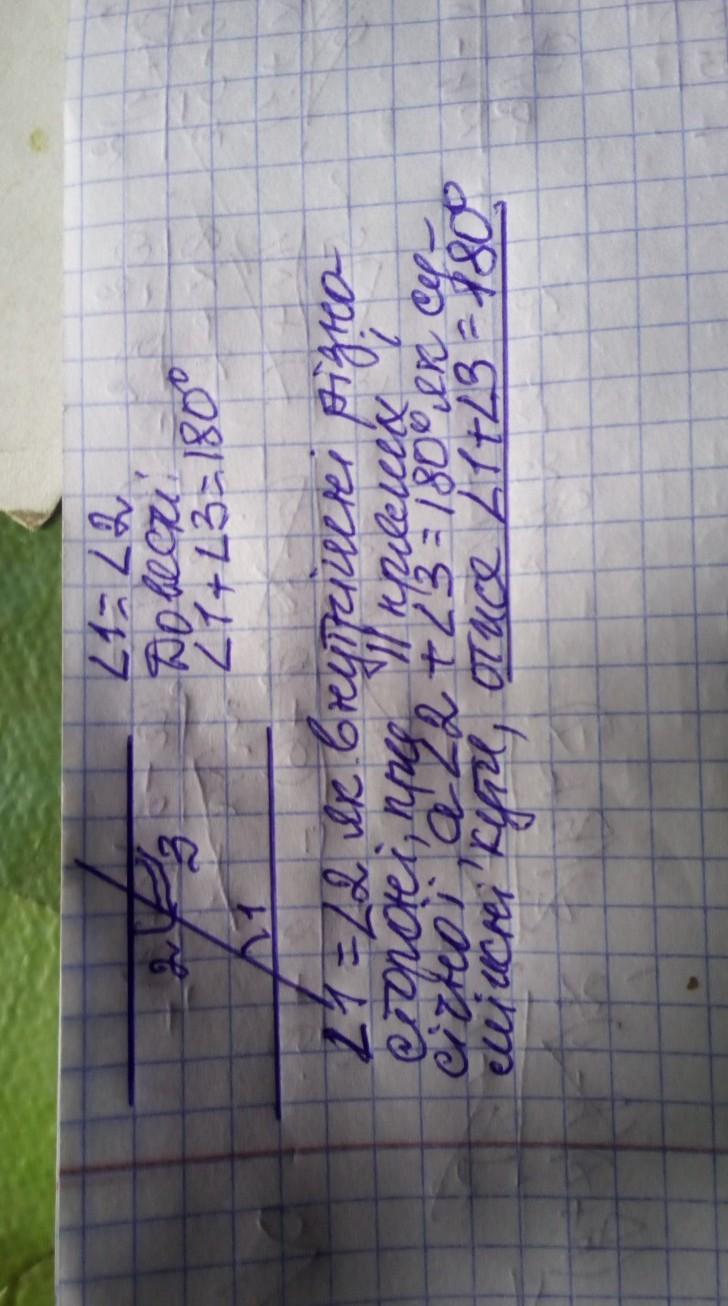 ∠1=∠2
Довести:
∠1+∠3=180°
2
3
1
∠1=∠2 як внутрішні різно-
сторонні, при || прямих і
січної; а ∠2+∠3=180° як су-
міжні кути, отже ∠1+∠3=180°